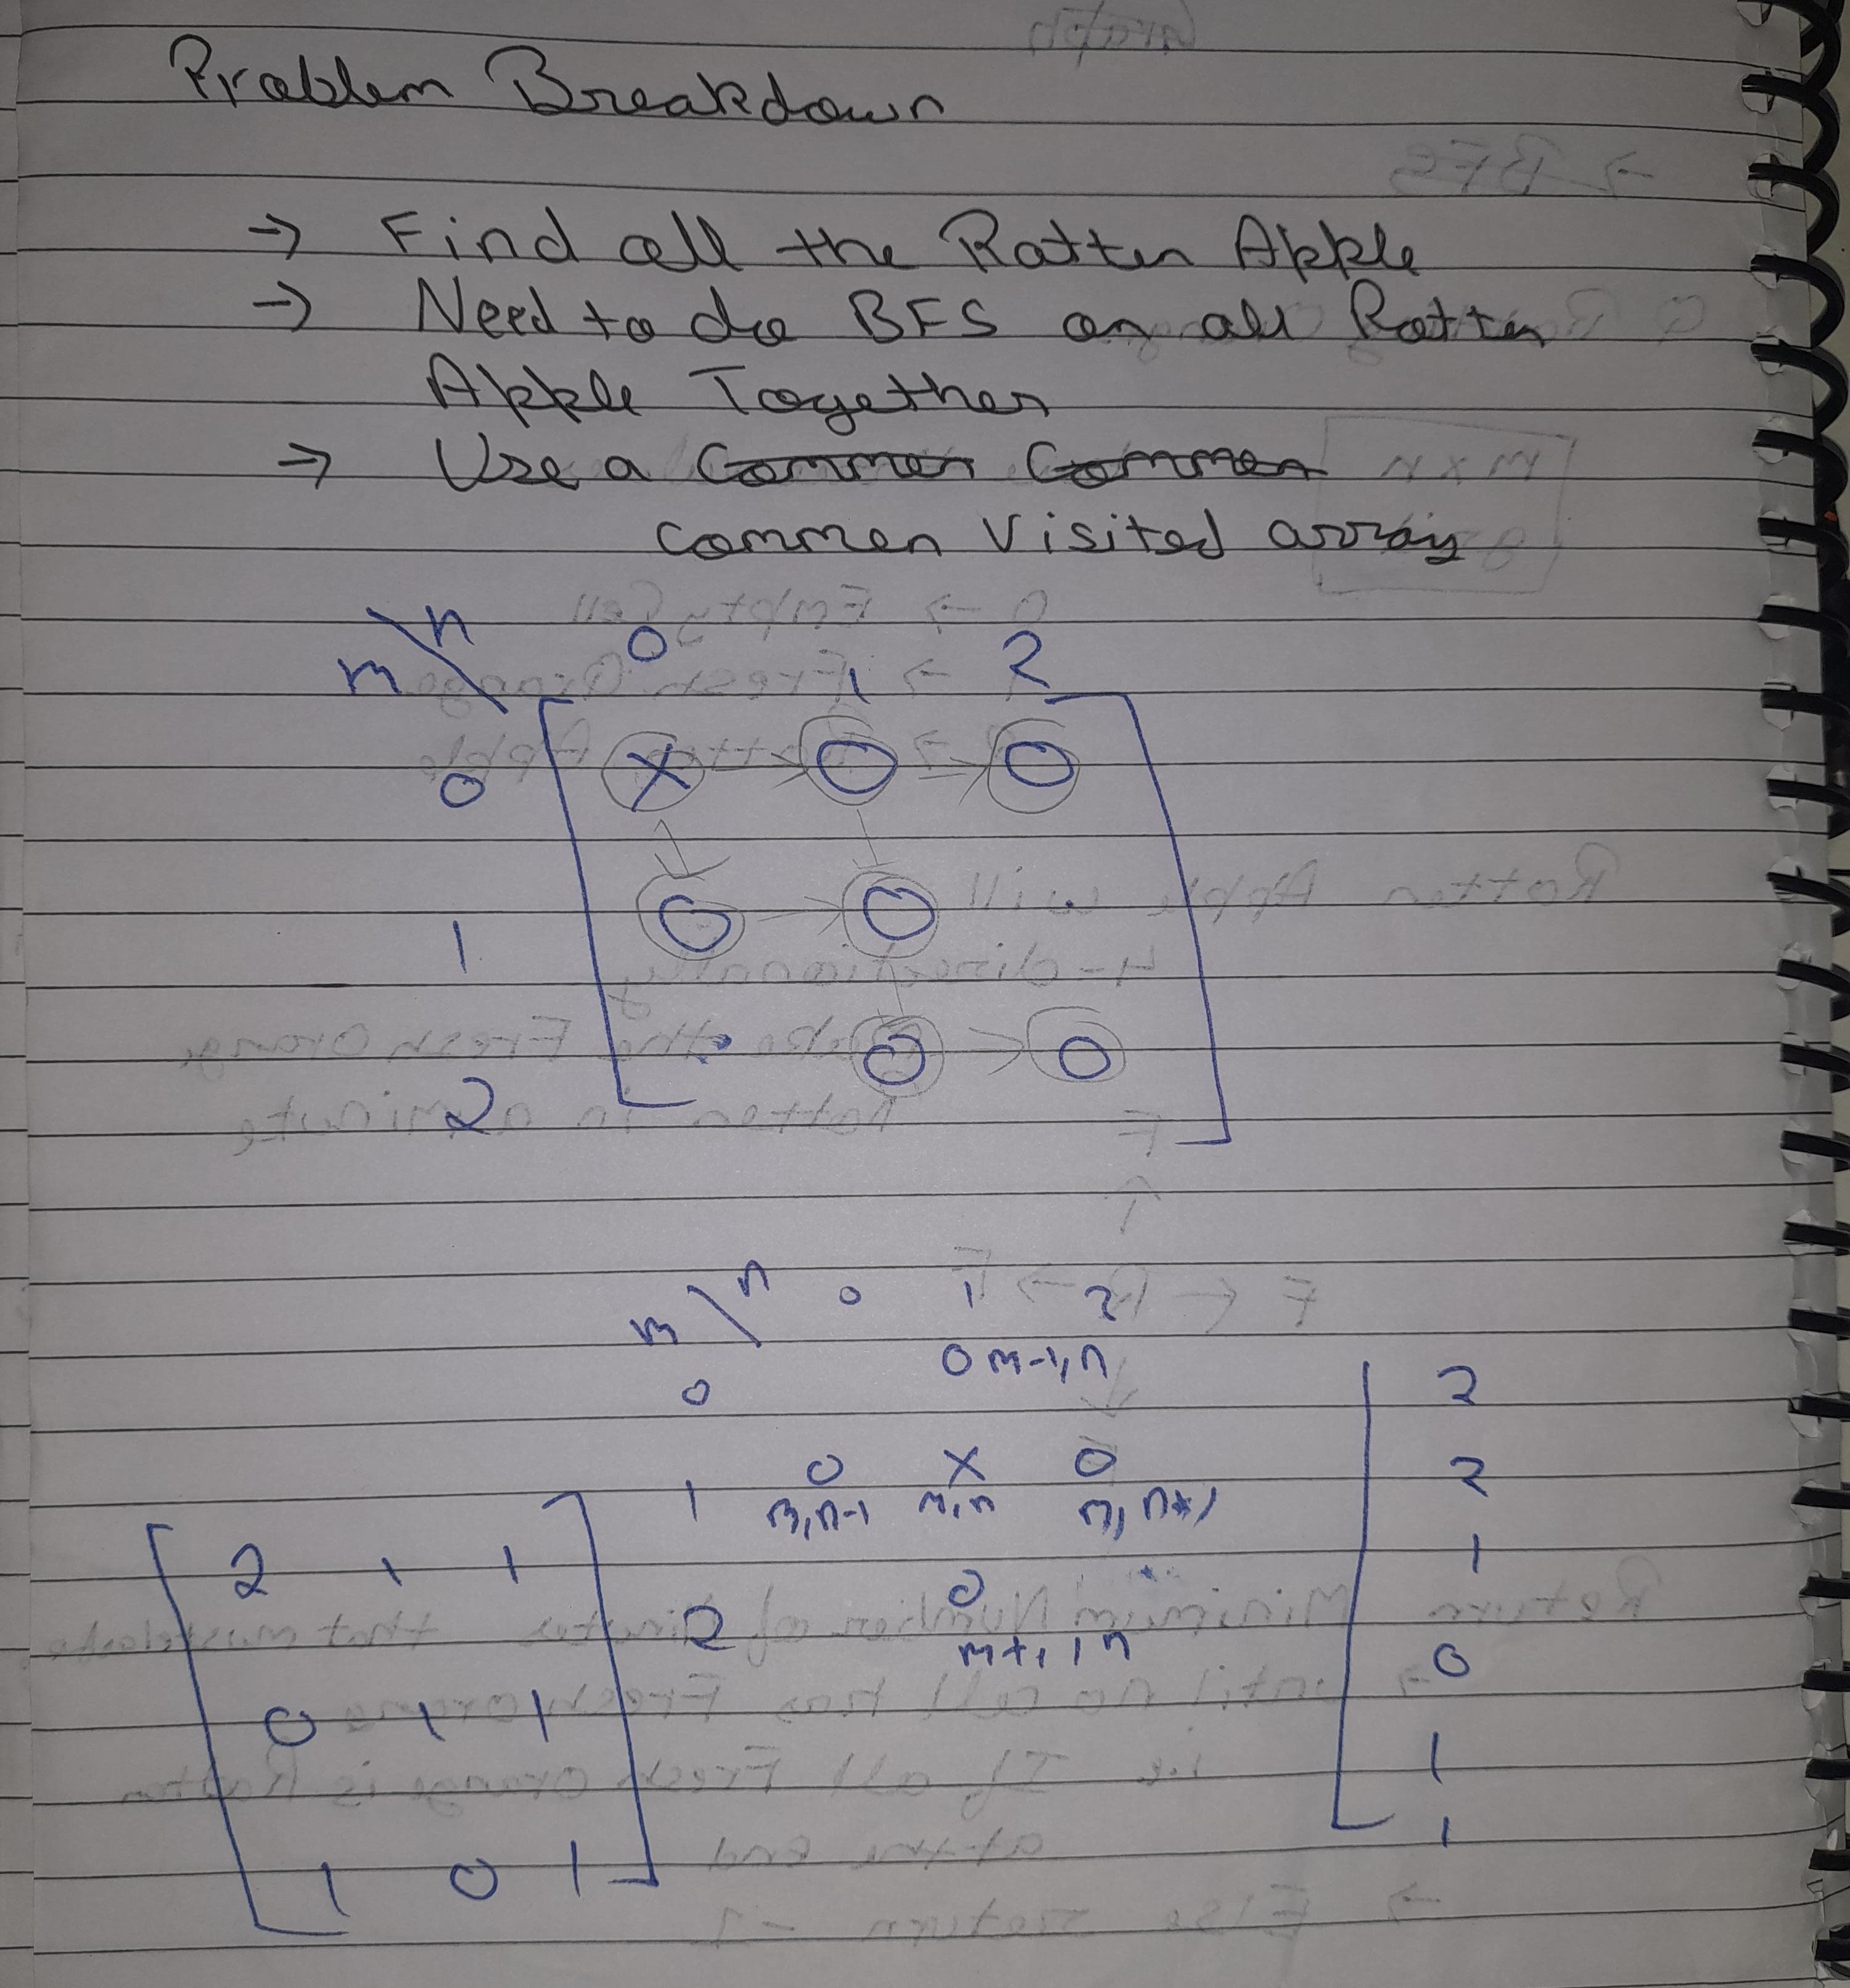 Problem Breakdown
→ Find all the Rotten Apple
→ Need to do BFS on all Rotten
Apple Together
→ Use a Common Common
Common Visited array
m \ n 0 1 2
0 X O O
1 O O
2 . O O
m \ n 0 1 2
0 O m-1, n
1 O X O
m, n-1 m, n m, n+1
2 O
m+1, n
2 1 1
0 1 1
1 0 1
2
2
1
0
1
1